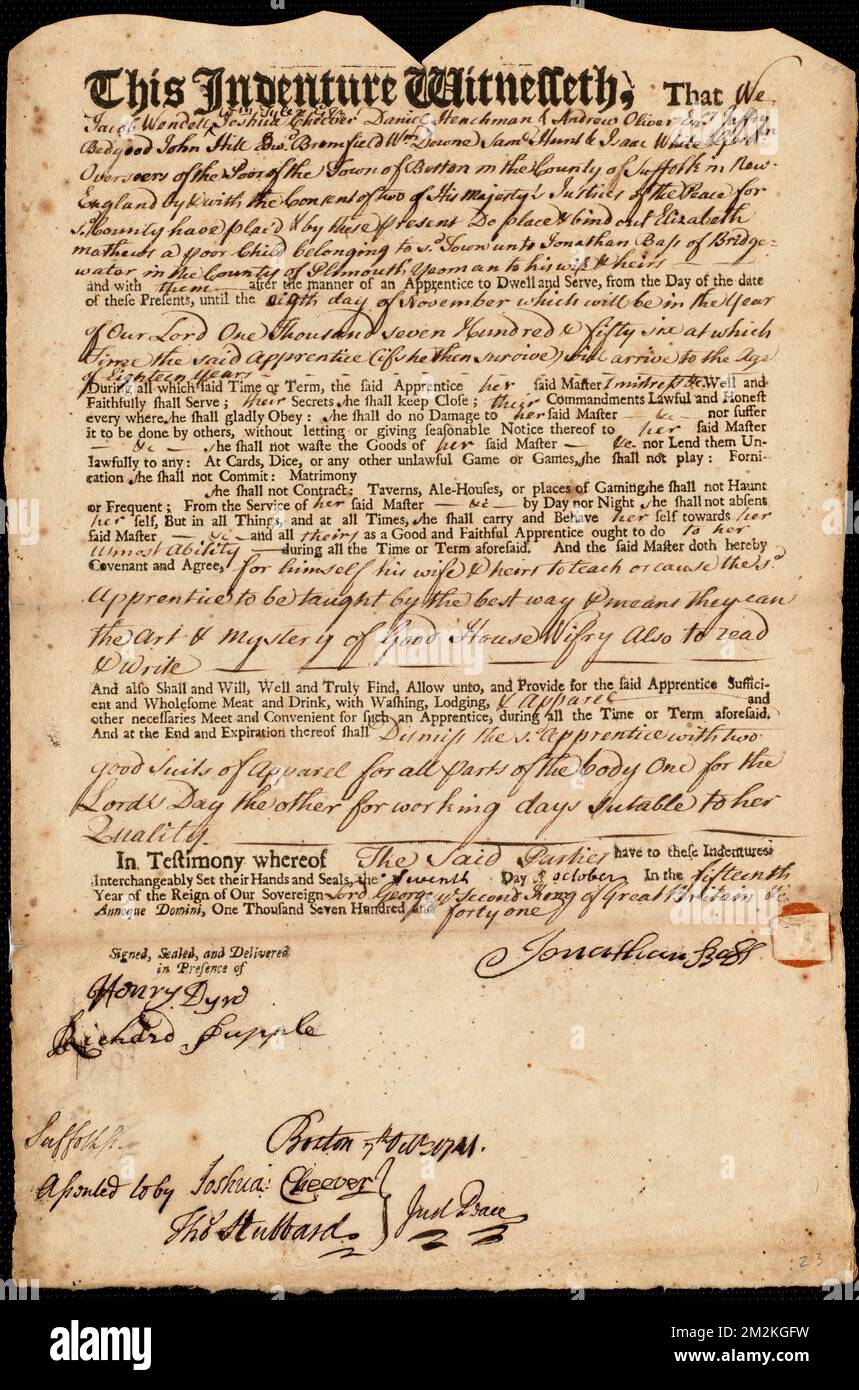 This Indenture Witnesseth, That We
Jacob Wendell Joshua Cheever Daniel Henchman & Andrew Oliver Esqrs Jeffry
Bedgood John Hill Edwd Bromfield Wm Downe Saml Hunt & Isaac White
Overseers of the Poor of the Town of Boston in the County of Suffolk in New-
England by & with the Consent of two of His Majesty's Justices of the Peace for
sd County have plac'd & by these present Do place & bind out Elizabeth
mathews a poor Child belonging to sd Town unto Jonathan Bass of Bridge=
water in the County of Plimouth Yeoman to his wife & heirs
and with them after the manner of an Apprentice to Dwell and Serve, from the Day of the date
of these Presents, until the eighth day of November which will be in the Year
of Our Lord One Thousand seven Hundred & fifty six at which
Time the said Apprentice (if she then survive) will arrive to the Age
of Eighteen Years
During all which said Time or Term, the said Apprentice her said Master & mistress &c Well and
Faithfully shall Serve; their Secrets she shall keep Close; their Commandments Lawful and Honest
every where she shall gladly Obey: she shall do no Damage to her said Master &c nor suffer
it to be done by others, without letting or giving seasonable Notice thereof to her said Master
&c she shall not waste the Goods of her said Master &c nor Lend them Un-
lawfully to any: At Cards, Dice, or any other unlawful Game or Games, she shall not play: Forni-
cation she shall not Commit: Matrimony
she shall not Contract: Taverns, Ale-Houses, or places of Gaming she shall not Haunt
or Frequent: From the Service of her said Master &c by Day nor Night she shall not absent
her self, But in all Things, and at all Times, she shall carry and Behave her self towards her
said Master &c and all theirs as a Good and Faithful Apprentice ought to do to her
utmost Ability during all the Time or Term aforesaid. And the said Master doth hereby
Covenant and Agree, for himself his wife & heirs to teach or cause the sd
Apprentice to be taught by the best way & means they can
the Art & mystery of Good House Wifry Also to read
& write
And also Shall and Will, Well and Truly Find, Allow unto, and Provide for the said Apprentice Suffici-
ent and Wholesome Meat and Drink, with Washing, Lodging, & Apparel and
other necessaries Meet and Convenient for such an Apprentice, during all the Time or Term aforesaid.
And at the End and Expiration thereof shall Dismiss the sd Apprentice with two
good suits of Apparel for all Parts of the body One for the
Lords Day the other for working days sutable to her
Quality.
In Testimony whereof The Said Parties have to these Indentures
Interchangeably Set their Hands and Seals, the seventh Day of october In the fifteenth
Year of the Reign of Our Sovereign Lord George ye second King of Great Britain &c
Annoque Domini, One Thousand Seven Hundred and forty one
Signed, Sealed, and Delivered
in Presence of
Jonathan Bass
Henry Dyre
Richard Supple
Suffolk ss.
Boston 7th Octr 1741.
Assented to by Joshua Cheever
Thos Hubbard
Just Peace
23
alamy
Image ID: 2M2KGFW
www.alamy.com